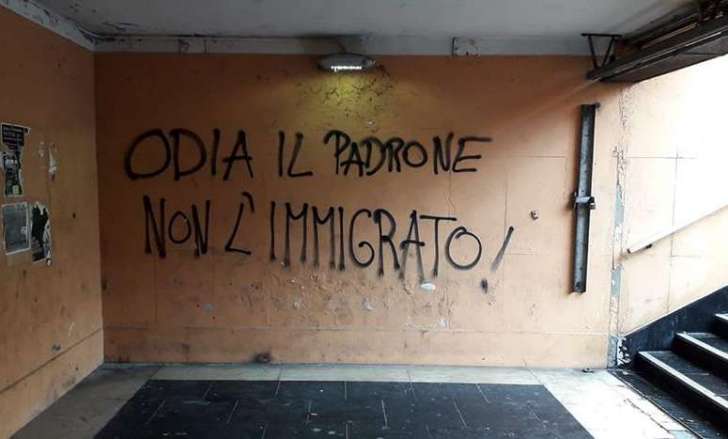 ODIA IL PADRONE
NON L'IMMIGRATO!